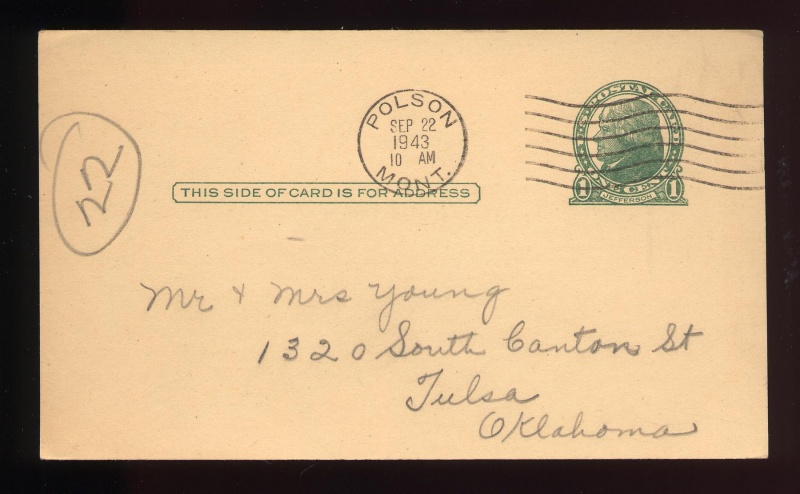 POLSON
SEP 22
1943
10 AM
MONT.
U.S. POSTAL CARD
ONE CENT
1 1
JEFFERSON
THIS SIDE OF CARD IS FOR ADDRESS
22
Mr & Mrs Young
1320 South Canton St
Tulsa
Oklahoma